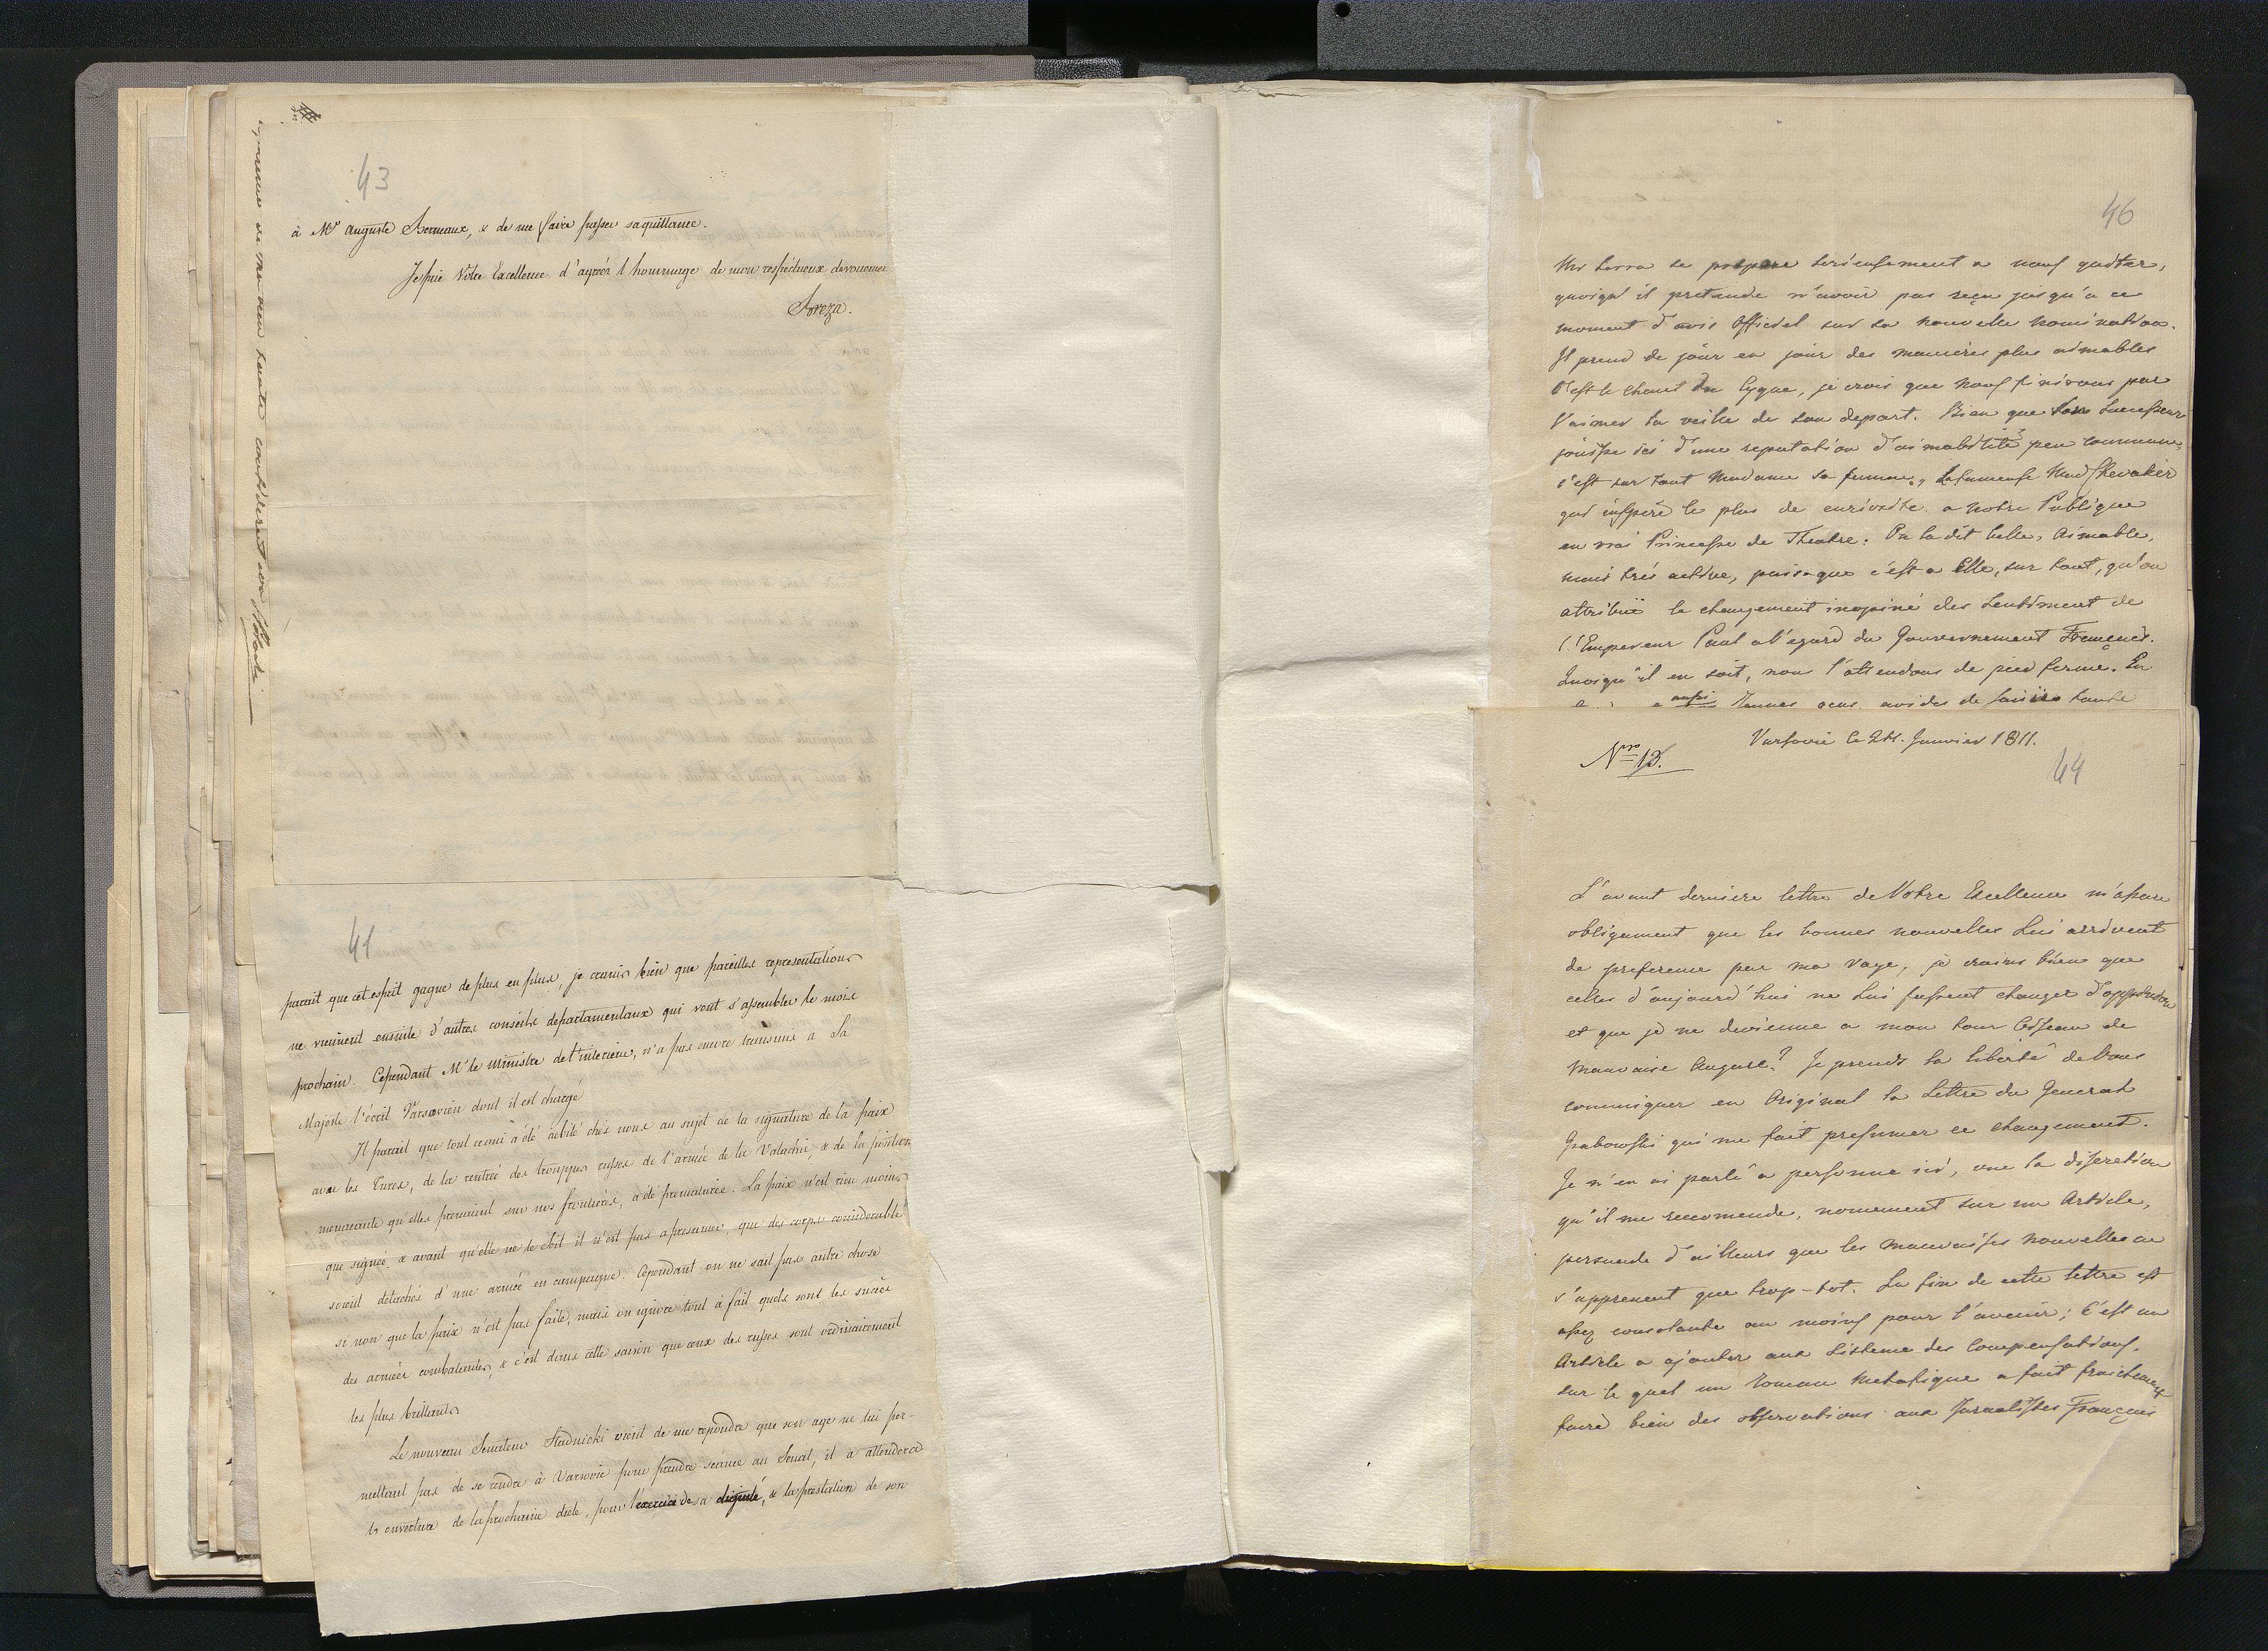 43
à Mr Auguste , & de me faire passer sa quittance.
Je prie Votre Excellence d'agréer l'hommage de mon respectueux devouement
Breza.
41
parait que cet esprit gagne de plus en plus, je crains bien que pareilles representations
ne viennent ensuite d'autres conseils departamentaux qui vont s'assembler le mois
prochain. Cependant Mr le Ministre de l'interieur, n'a pas encore transmis a Sa
Majesté l'écrit Varsovien dont il est chargé
Il parait que tout ce qui a été débité chés nous au sujet de la signature de la paix
avec les Turcs, de la rentrée des trouppes russes de l'armée de la Valachie, & de la position
menaçante qu'elles prenoient sur nos frontières, a été prematurée. La paix n'est rien moins
que signée, & avant qu'elle ne le soit il n'est pas a presumer, que des corps considerable
soient détachés d'une armée en campagne. Cependant on ne sait pas autre chose
si non que la paix n'est pas faite, mais on ignore tout à fait quels sont les succès
des armées combatantes, & c'est dans cette saison que ceux des russes sont ordinairement
les plus brillants
Le nouveau Senateur Stadnicki vient de me repondre que son age ne lui per-
mettant pas de se rendre à Varsovie pour prendre séance au Senat, il a attendera
l'ouverture de la prochaine diete, pour l'exercice de sa dignité, & la prestation de son
46
Mr Serra se prepare serieusement a nous quitter,
quoiqu'il pretende n'avoir pas reçu jusqu'a ce
moment d'avis Officiel sur sa nouvelle nomination.
Il prend de jour en jour des manieres plus aimables
c'est le chant du Cygne, je crois que nous finirons par
l'aimer la veille de son depart. Bien que son Successeur
jouisse ici d'une reputation d'aimabilité peu commune,
c'est sur tout Madame sa femme, la fameuse Mad Chevalier
qui inspire le plus de curiosité a notre Publique
en vrai Princesse de Theatre. On la dit belle, aimable,
mais très active, puisque c'est a Elle, sur tout, qu'on
attribuë le changement inopiné des sentiment de
l'Empereur Paul a l'egard du Gouvernement Français.
Quoiqu'il en soit, nous l'attendons de pied ferme. En
aussi avides de saisir toute
Nro 13.
Varsovie le 24. Janvier 1811.
44
L'avant derniere lettre de Votre Excellence m'assure
obligament que les bonnes nouvelles Lui arrivent
de preference par ma voye, je crains bien que
celles d'aujourd'hui ne Lui fassent changer d'oppinion
et que je ne devienne a mon tour l'oiseau de
mauvaise Augure? Je prends la liberté de Vous
comuniquer en Original la Lettre du General
Grabowski qui me fait presumer ce changement.
Je n'en ai parlé a personne ici, vue la discretion
qu'il me recomende, nomement sur un Article,
persuade d'ailleurs que les mauvaises nouvelles ne
s'apprenent que trop-tot. La fin de cette lettre est
assez consolante au moins pour l'avenir; c'est un
Article a ajouter aux Sisteme des Compensations,
sur le quel un Roman Metafique a fait fraichement
faire bien des observations aux Jurnalistes Français